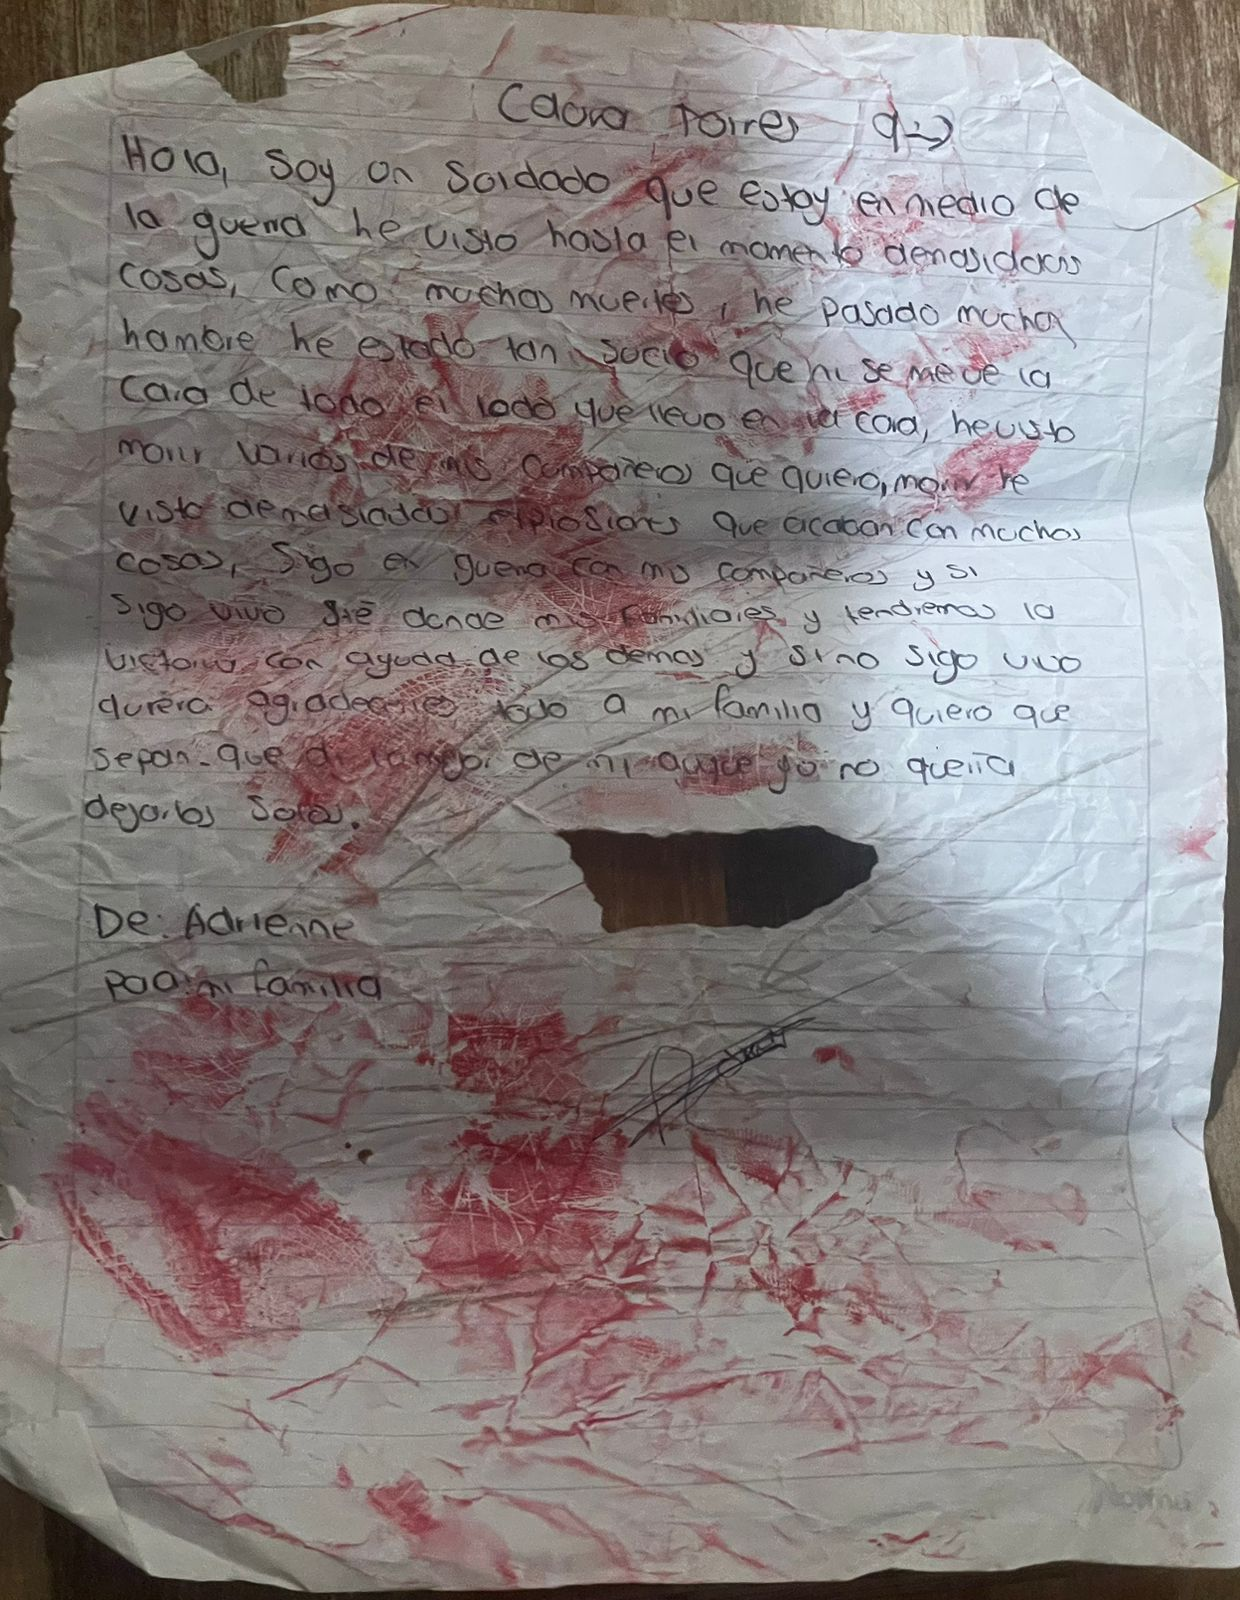 Torres 9-3
Hola, Soy un Soldado que estoy en medio de
la guerra he visto hasta el momento demasidads
cosas, Como muchas muertes, he pasado mucha
hambre he estado tan sucio que ni se me ve la
cara de todo el lodo que llevo en la cara, he visto
morir varios de mis compañeros que quiero, morir he
visto demasiadas explosiones que acaban con muchas
cosas, Sigo en guerra con mis compañeros y si
sigo vivo iré donde mis familiares y tendremos la
victoria con ayuda de los demas y si no sigo vivo
quiero agradecerles todo a mi familia y quiero que
sepan que di lo mejor de mi yo no quería
dejarlos solos.
De: Adrienne
mi familia